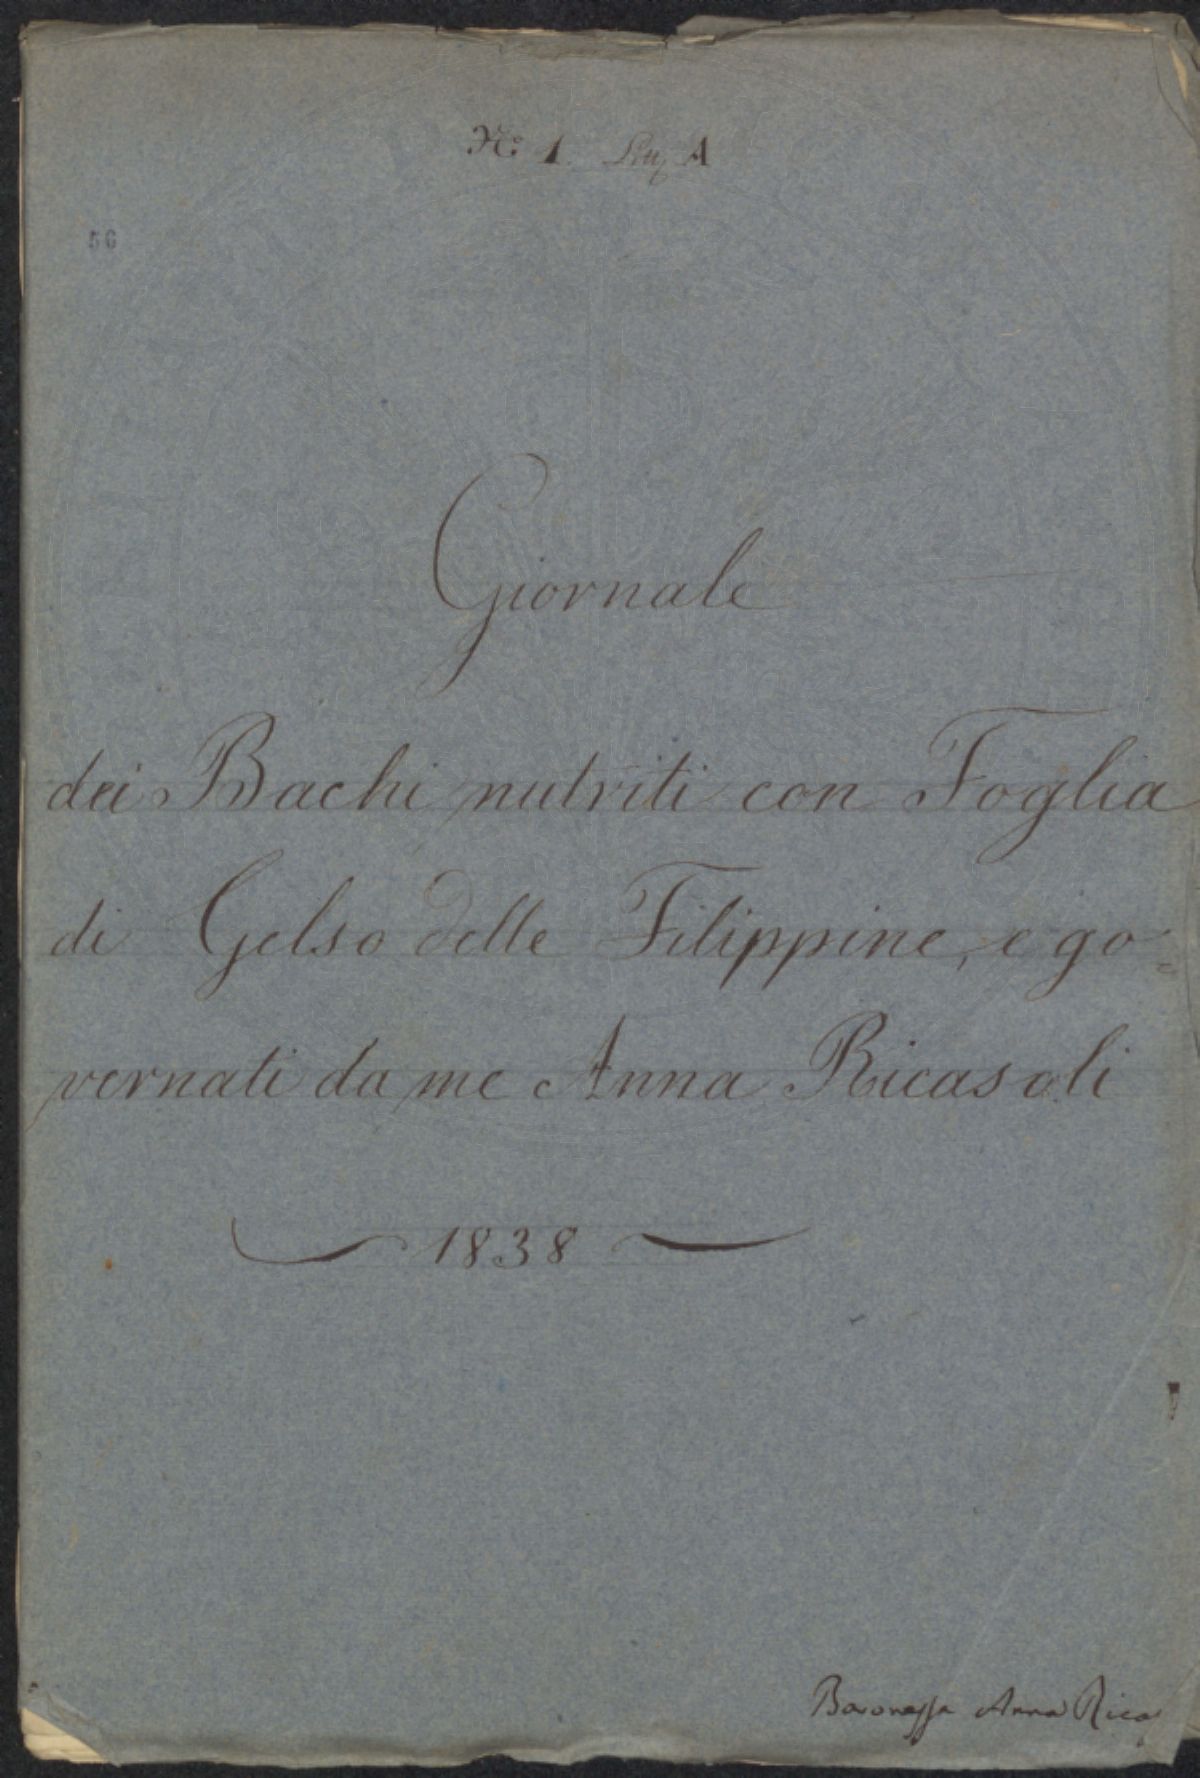 N.º 1. A
56
Giornale
dei Bachi nutriti con Foglia
di Gelso delle Filippine, e go=
vernati da me Anna Ricasoli
1838
Baronessa Anna Ricas